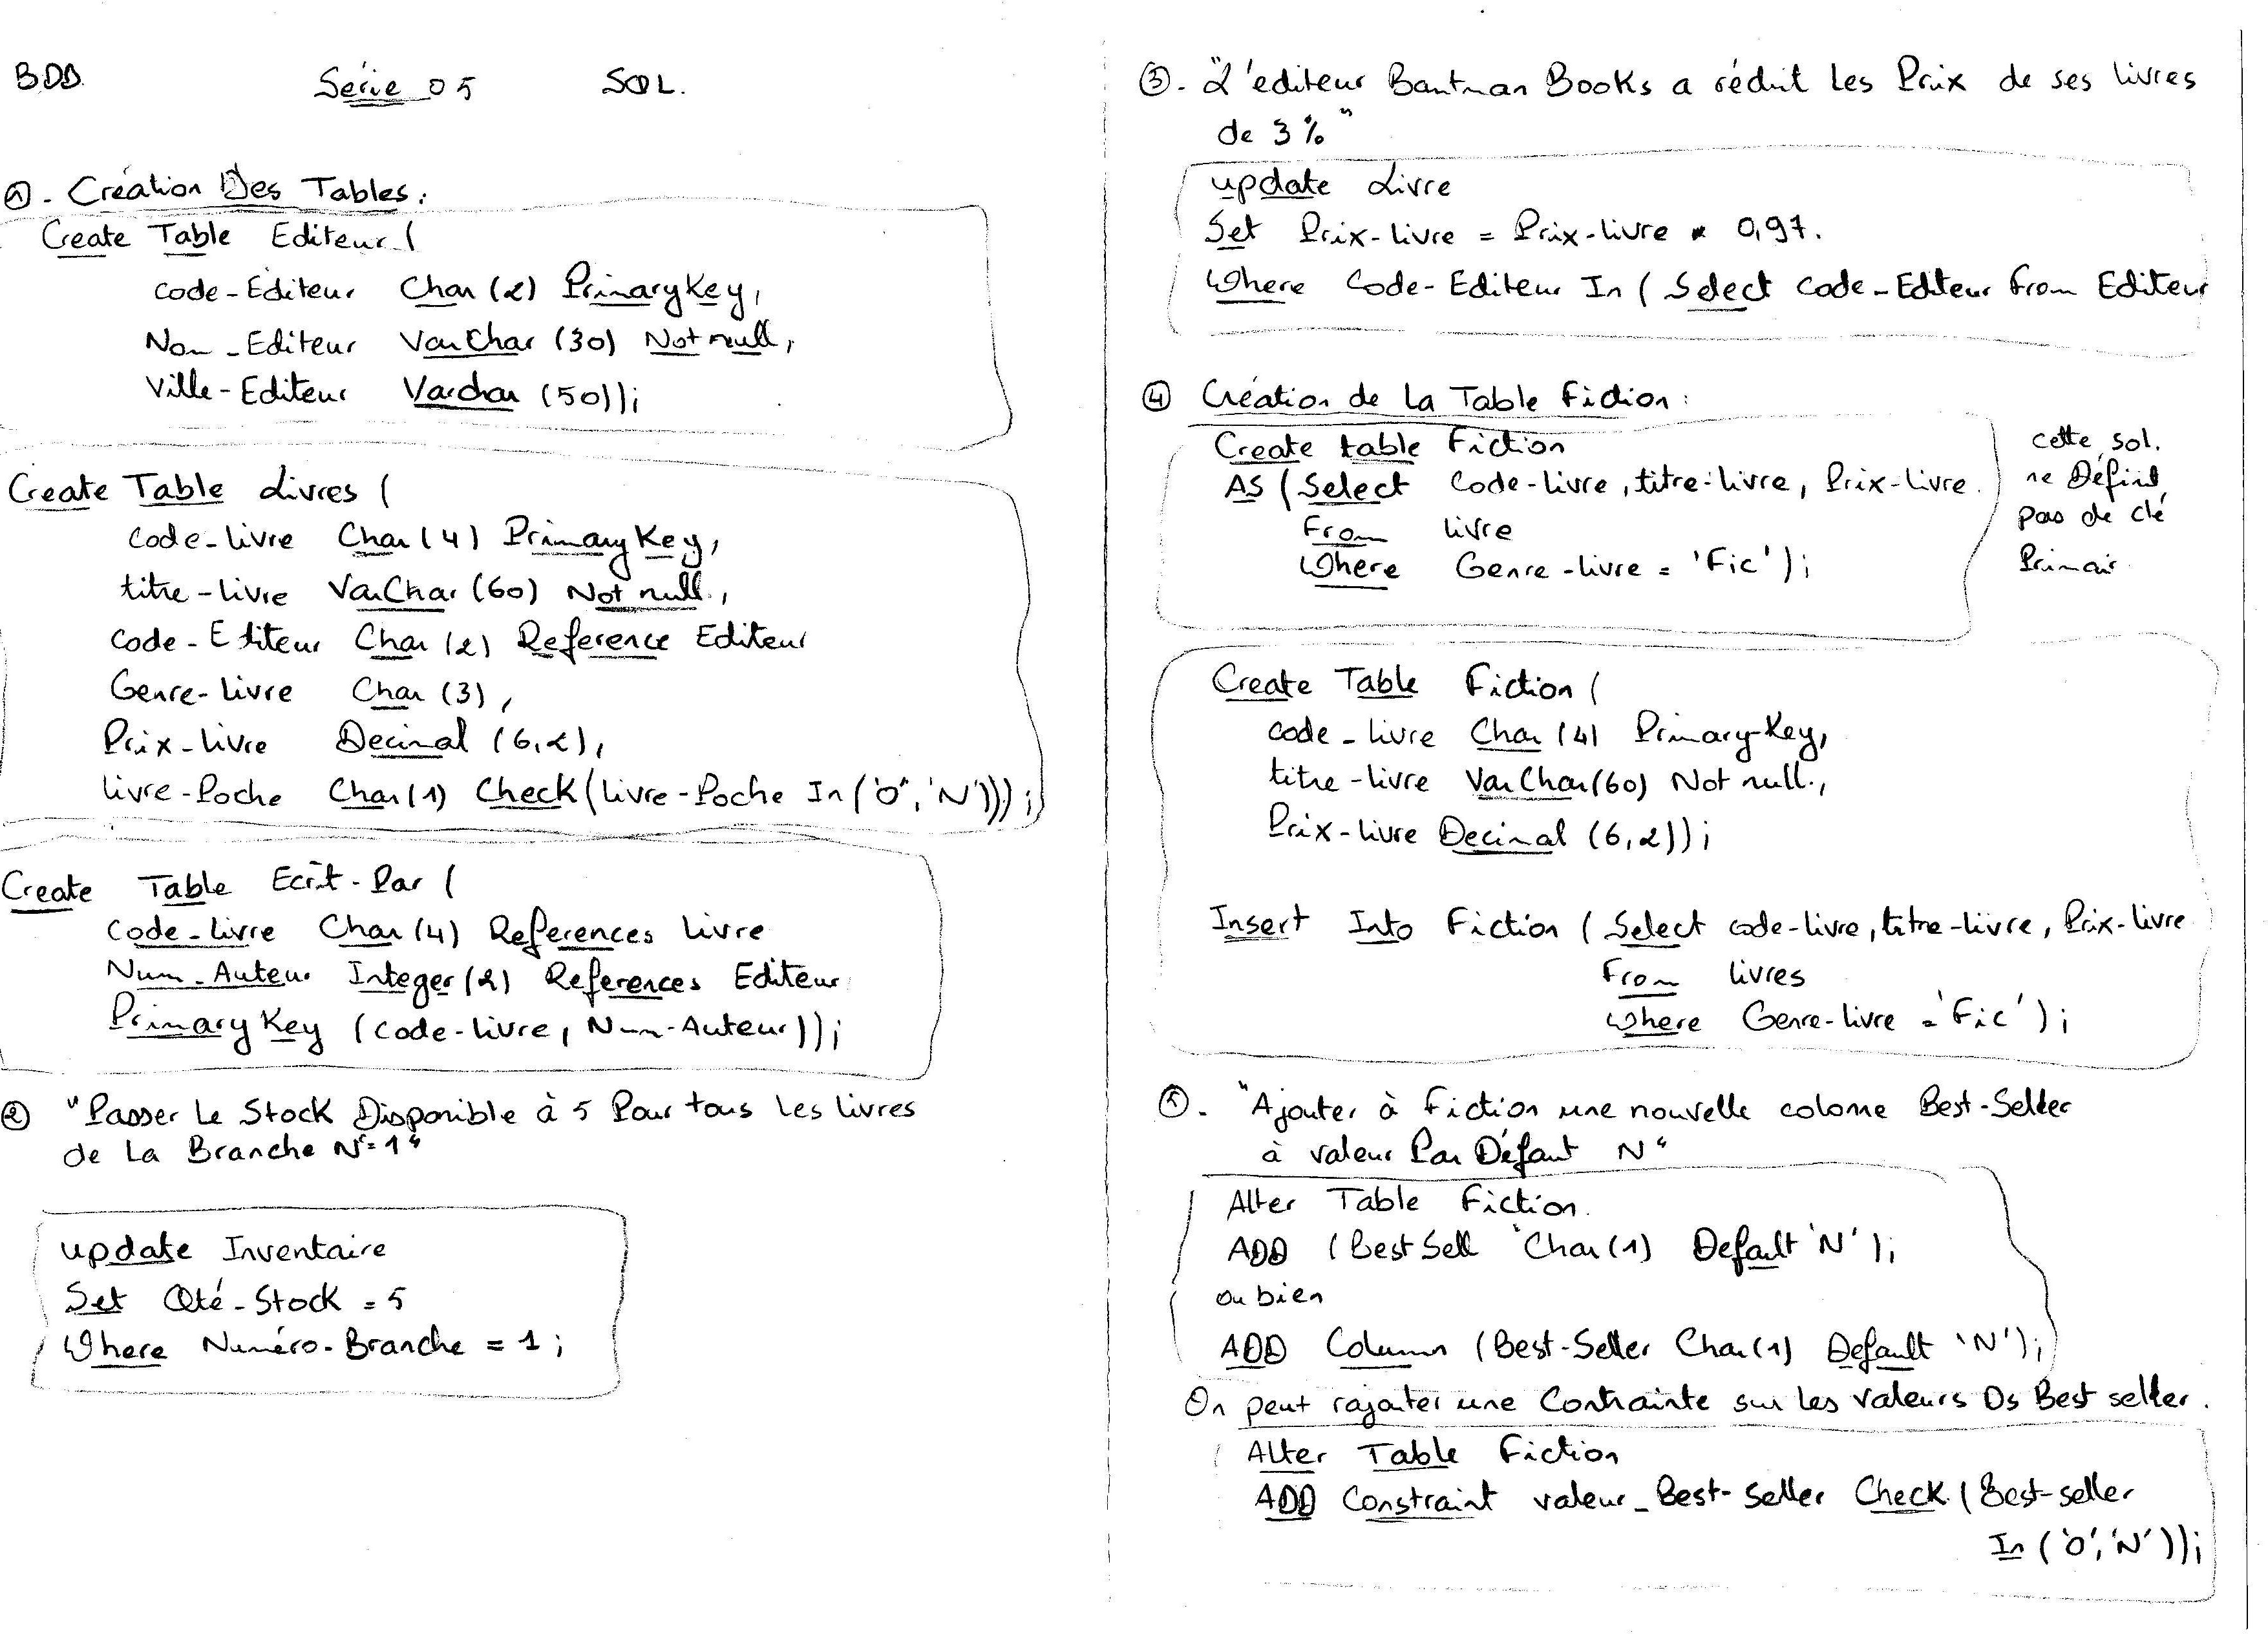 BDD. Série 05 SQL.
① - Création Des Tables :
Create Table Editeur (
code-Editeur Char (2) Primary Key,
Nom-Editeur VarChar (30) Not null,
Ville-Editeur Varchar (50));
Create Table Livres (
code-livre Char (4) Primary Key,
titre-livre VarChar (60) Not null,
code-Editeur Char (2) Reference Editeur
Genre-livre Char (3),
Prix-livre Decimal (6,2),
livre-Poche Char(1) Check (livre-Poche In ('O', 'N')));
Create Table Ecrit-Par (
code-livre Char (4) References livre
Num-Auteur Integer (2) References Editeur
Primary Key (code-livre, Num-Auteur));
② "Passer Le Stock Disponible à 5 Pour tous Les livres
de La Branche N°=1"
update Inventaire
Set Qté-Stock = 5
Where Numéro-Branche = 1;
③ - "L'editeur Bantman Books a réduit Les Prix de ses livres
de 3%"
update Livre
Set Prix-livre = Prix-livre * 0,97.
Where Code-Editeur In (Select code-Editeur From Editeur
④ Création de La Table Fiction :
Create table Fiction
AS (Select Code-livre, titre-livre, Prix-livre.
From livre
Where Genre-livre = 'Fic');
cette sol.
ne Définit
pas de clé
Primair.
Create Table Fiction (
code-livre Char (4) Primary-Key,
titre-livre VarChar(60) Not null,
Prix-livre Decimal (6,2));
Insert Into Fiction (Select code-livre, titre-livre, Prix-livre
From livres
Where Genre-livre = 'Fic');
⑤ - "Ajouter à Fiction une nouvelle colone Best-Seller
à valeur Par Défaut N"
Alter Table Fiction.
ADD (Best Sell Char(1) Default 'N');
ou bien
ADD Column (Best-Seller Char(1) Default 'N');
On peut rajouter une Contrainte sur Les valeurs Ds Best seller.
Alter Table Fiction
ADD Constraint valeur_Best-Seller Check (Best-seller
In ('O', 'N'));